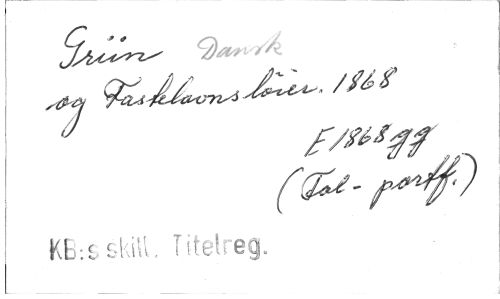 Grün Dansk
og Fastelavnsløier. 1868
E 1868 gg
(Fol - portf.)
KB:s skill. Titelreg.